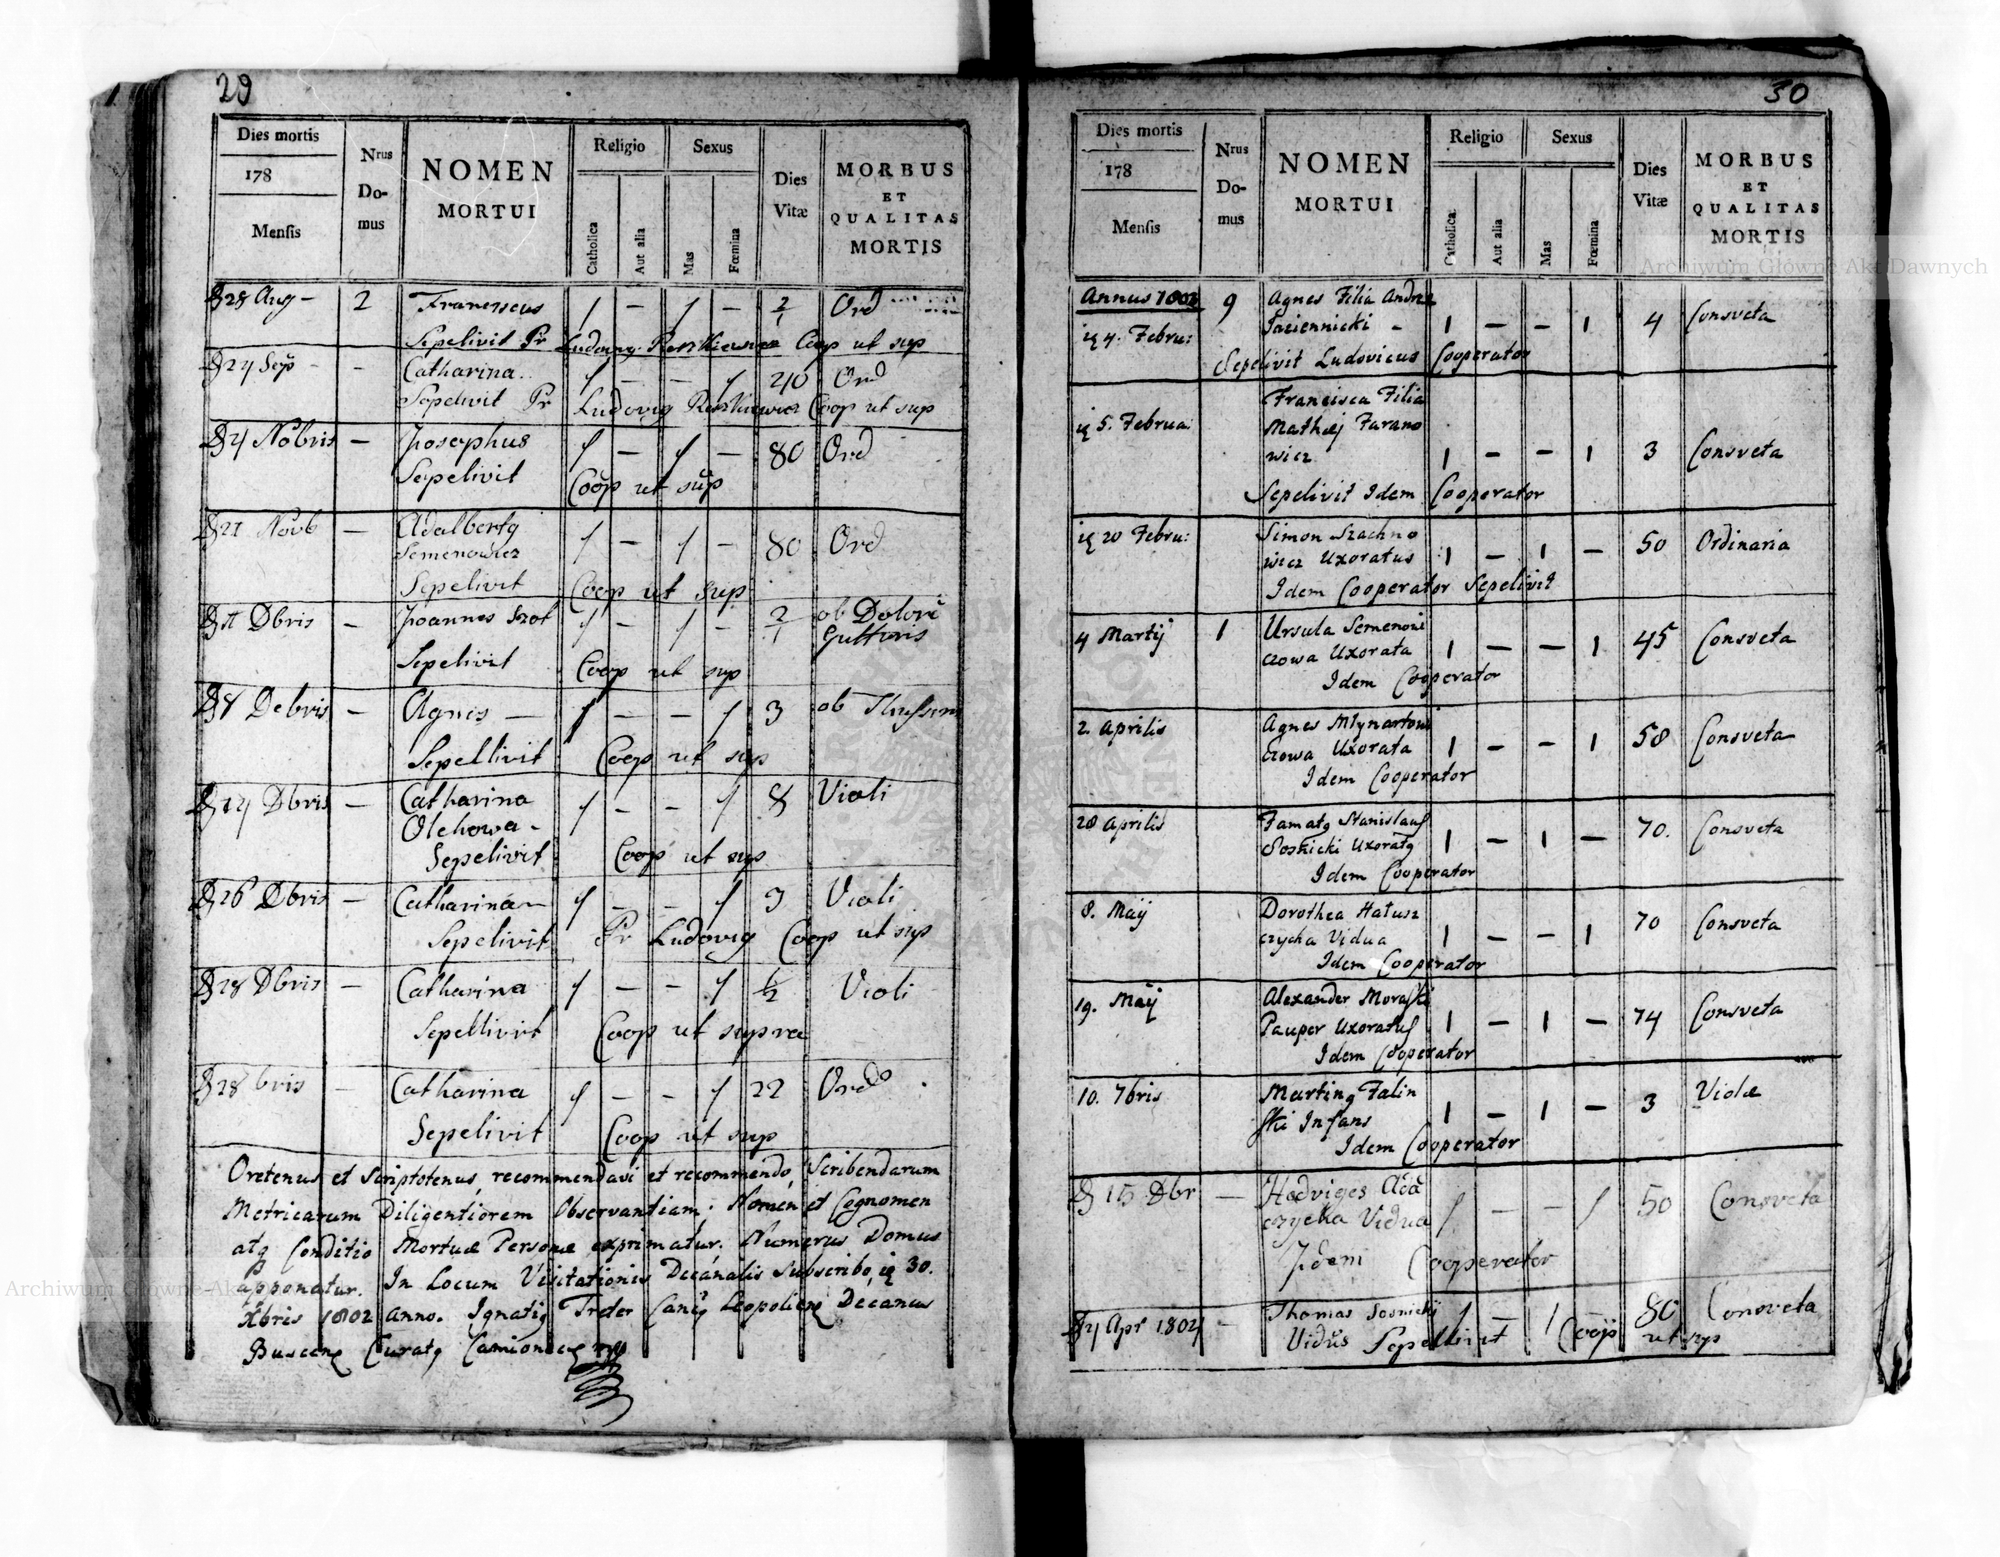 29
Dies mortis
178
Mensis
Nrus
Do-
mus
NOMEN
MORTUI
Religio
Catholica
Aut alia
Sexus
Mas
Fœmina
Dies
Vitæ
MORBUS
ET
QUALITAS
MORTIS
28 Aug - 2 Franciscus 1 — 1 — Ord
Sepelivit Pr Ludovig Coop ut sup
24 Sep - - Catharina 1 — — 1 Ord
Sepelivit Pr Ludovig Coop ut sup
4 Nobris — Josephus 1 — 1 — 80 Ord
Sepelivit Coop ut sup
21 Novb — Adalbertg 1 — 1 — 80 Ord
Semenowicz
Sepelivit Coop ut sup
Dbris — Joannes Szot 1 — 1 — 2/1 ob Dolore
Gutturis
Sepelivit Coop ut sup
8 Debris — Agnes — 1 — — 1 3 ob Thussim
Sepellivit Coop ut sup
14 Dbris — Catharina 1 — — 1 8 Violi
Olehowa -
Sepelivit Coop ut sup
26 Dbris — Catharina 1 — — 1 3 Violi
Sepelivit Pr Ludovig Coop ut sup
28 Dbris — Catharina 1 — — 1 1/2 Violi
Sepellivit Coop ut supra
28 bris — Catharina 1 — — 1 22 Ord
Sepelivit Coop ut sup
Oretenus et Scriptotenus, recommendavi et recommendo, Scribendarum
Metricarum Diligentiorem Observantiam; Nomen et Cognomen
atq Conditio Mortuæ Personæ exprimatur. Numerus Domus
apponatur. In Locum Visitationis Decanalis Subscribo, 30.
Xbris 1802 anno. Ignatig Treter Leopoliens Decanus
Buscens Curatg
30
Dies mortis
178
Mensis
Nrus
Do-
mus
NOMEN
MORTUI
Religio
Catholica
Aut alia
Sexus
Mas
Fœmina
Dies
Vitæ
MORBUS
ET
QUALITAS
MORTIS
Annus 1802 9 Agnes Filia Andreæ
4. Febru: Łaziennicki - 1 — — 1 4 Consveta
Sepelivit Ludovicus Cooperator
Francisca Filia
5. Februa: Mathiej Tarano
wicz 1 — — 1 3 Consveta
Sepelivit Idem Cooperator
20 Febru: Simon Szachno
wicz Uxoratus 1 — 1 — 50 Ordinaria
Idem Cooperator Sepelivit
4 Martij 1 Ursula Semenowi
czowa Uxorata 1 — — 1 45 Consveta
Idem Cooperator
2. Aprilis Agnes Młynartowi
czowa Uxorata 1 — — 1 58 Consveta
Idem Cooperator
28 Aprilis Famatg Stanislaus
Sosnicki Uxoratg 1 — 1 — 70. Consveta
Idem Cooperator
8. Maij Dorothea Hałusz
czycka Vidua 1 — — 1 70 Consveta
Idem Cooperator
19. Maij Alexander Morawski
Pauper Uxoratus 1 — 1 — 74 Consveta
Idem Cooperator
10. 7bris Marting Falin
ski Infans 1 — 1 — 3 Violæ
Idem Cooperator
15 Dbr — Hedviges Ada
czycka Vidua 1 — — 1 50 Consveta
Idem Cooperator
Apr 1802 — Thomas Sosnicki 1 — 1 — 80 Consveta
Vidus Sepellivit Coop ut sup
Archiwum Główne Akt Dawnych
Archiwum Główne Akt Dawnych